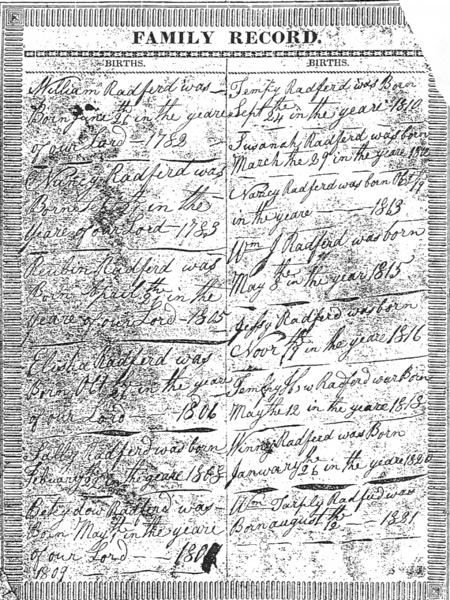 FAMILY RECORD.
BIRTHS.
William Radferd was
Born June the in the yeare
of our Lord — 1782
Nancy Radferd was
Borne in the
yeare of our Lord — 1783
Reubin Radferd was
Born April the 26 in the
yeare of our Lord — 1805
Elisha Radferd was
Born Oct in the yeare
of our Lord — 1806
Sally Radferd was born
Februarey the in the yeare 1808
Radferd was
Born May the in the yeare
of our Lord —
1809
BIRTHS.
Radferd was Born
Sept the 24 in the yeare 1810
Susanah Radferd was born
March the 29 in the yeare
Nancy Radferd was born Oct 19
in the yeare — 1813
Wm J Radferd was born
May the 8 in the year 1815
Jessy Radferd was born
Novr the 17 in the year 1816
Radferd was Born
May the 12 in the yeare 1818
Winney Radferd was Born
January the 26 in the yeare 1820
Wm Tarply Radferd was
Born august the 12 — 1821